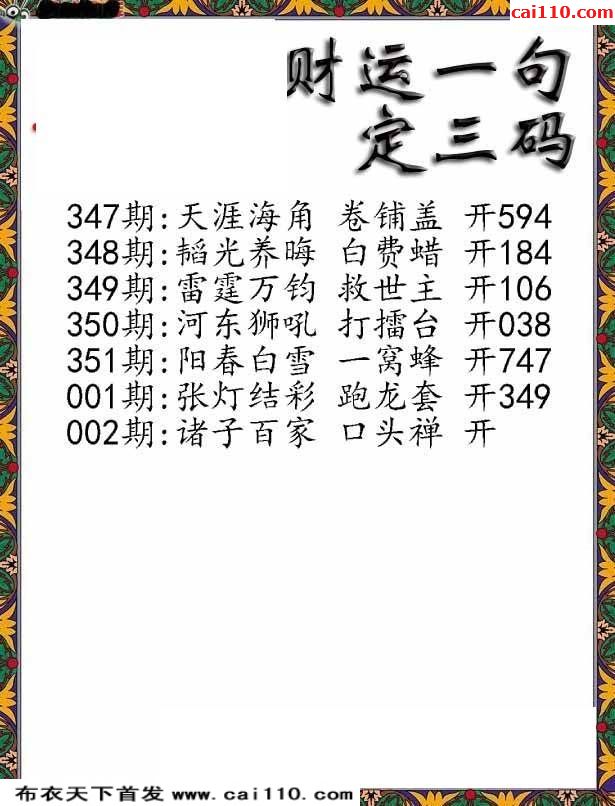 cai110.com
财运一句
定三码
347期:天涯海角 卷铺盖 开594
348期:韬光养晦 白费蜡 开184
349期:雷霆万钧 救世主 开106
350期:河东狮吼 打擂台 开038
351期:阳春白雪 一窝蜂 开747
001期:张灯结彩 跑龙套 开349
002期:诸子百家 口头禅 开
布衣天下首发 www.cai110.com